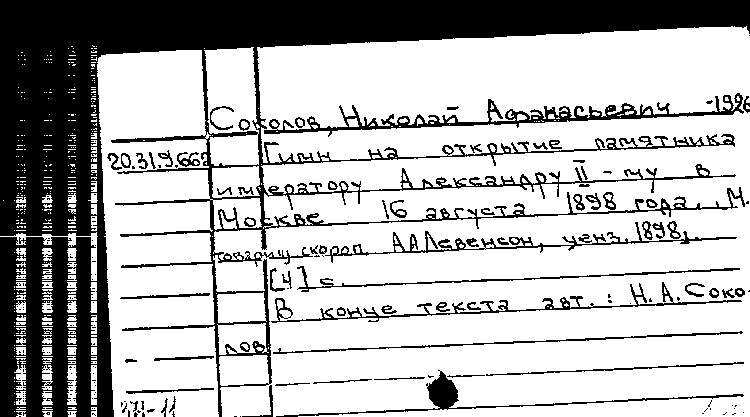 Соколов, Николай Афанасьевич -1926
20.31.9.662. Гимн на открытие памятника
императору Александру II-му в
Москве 16 августа 1898 года. М.
товарищ скороп. А.А.Левенсон, ценз. 1898.
[4] с.
В конце текста авт.: Н.А.Соко-
лов.